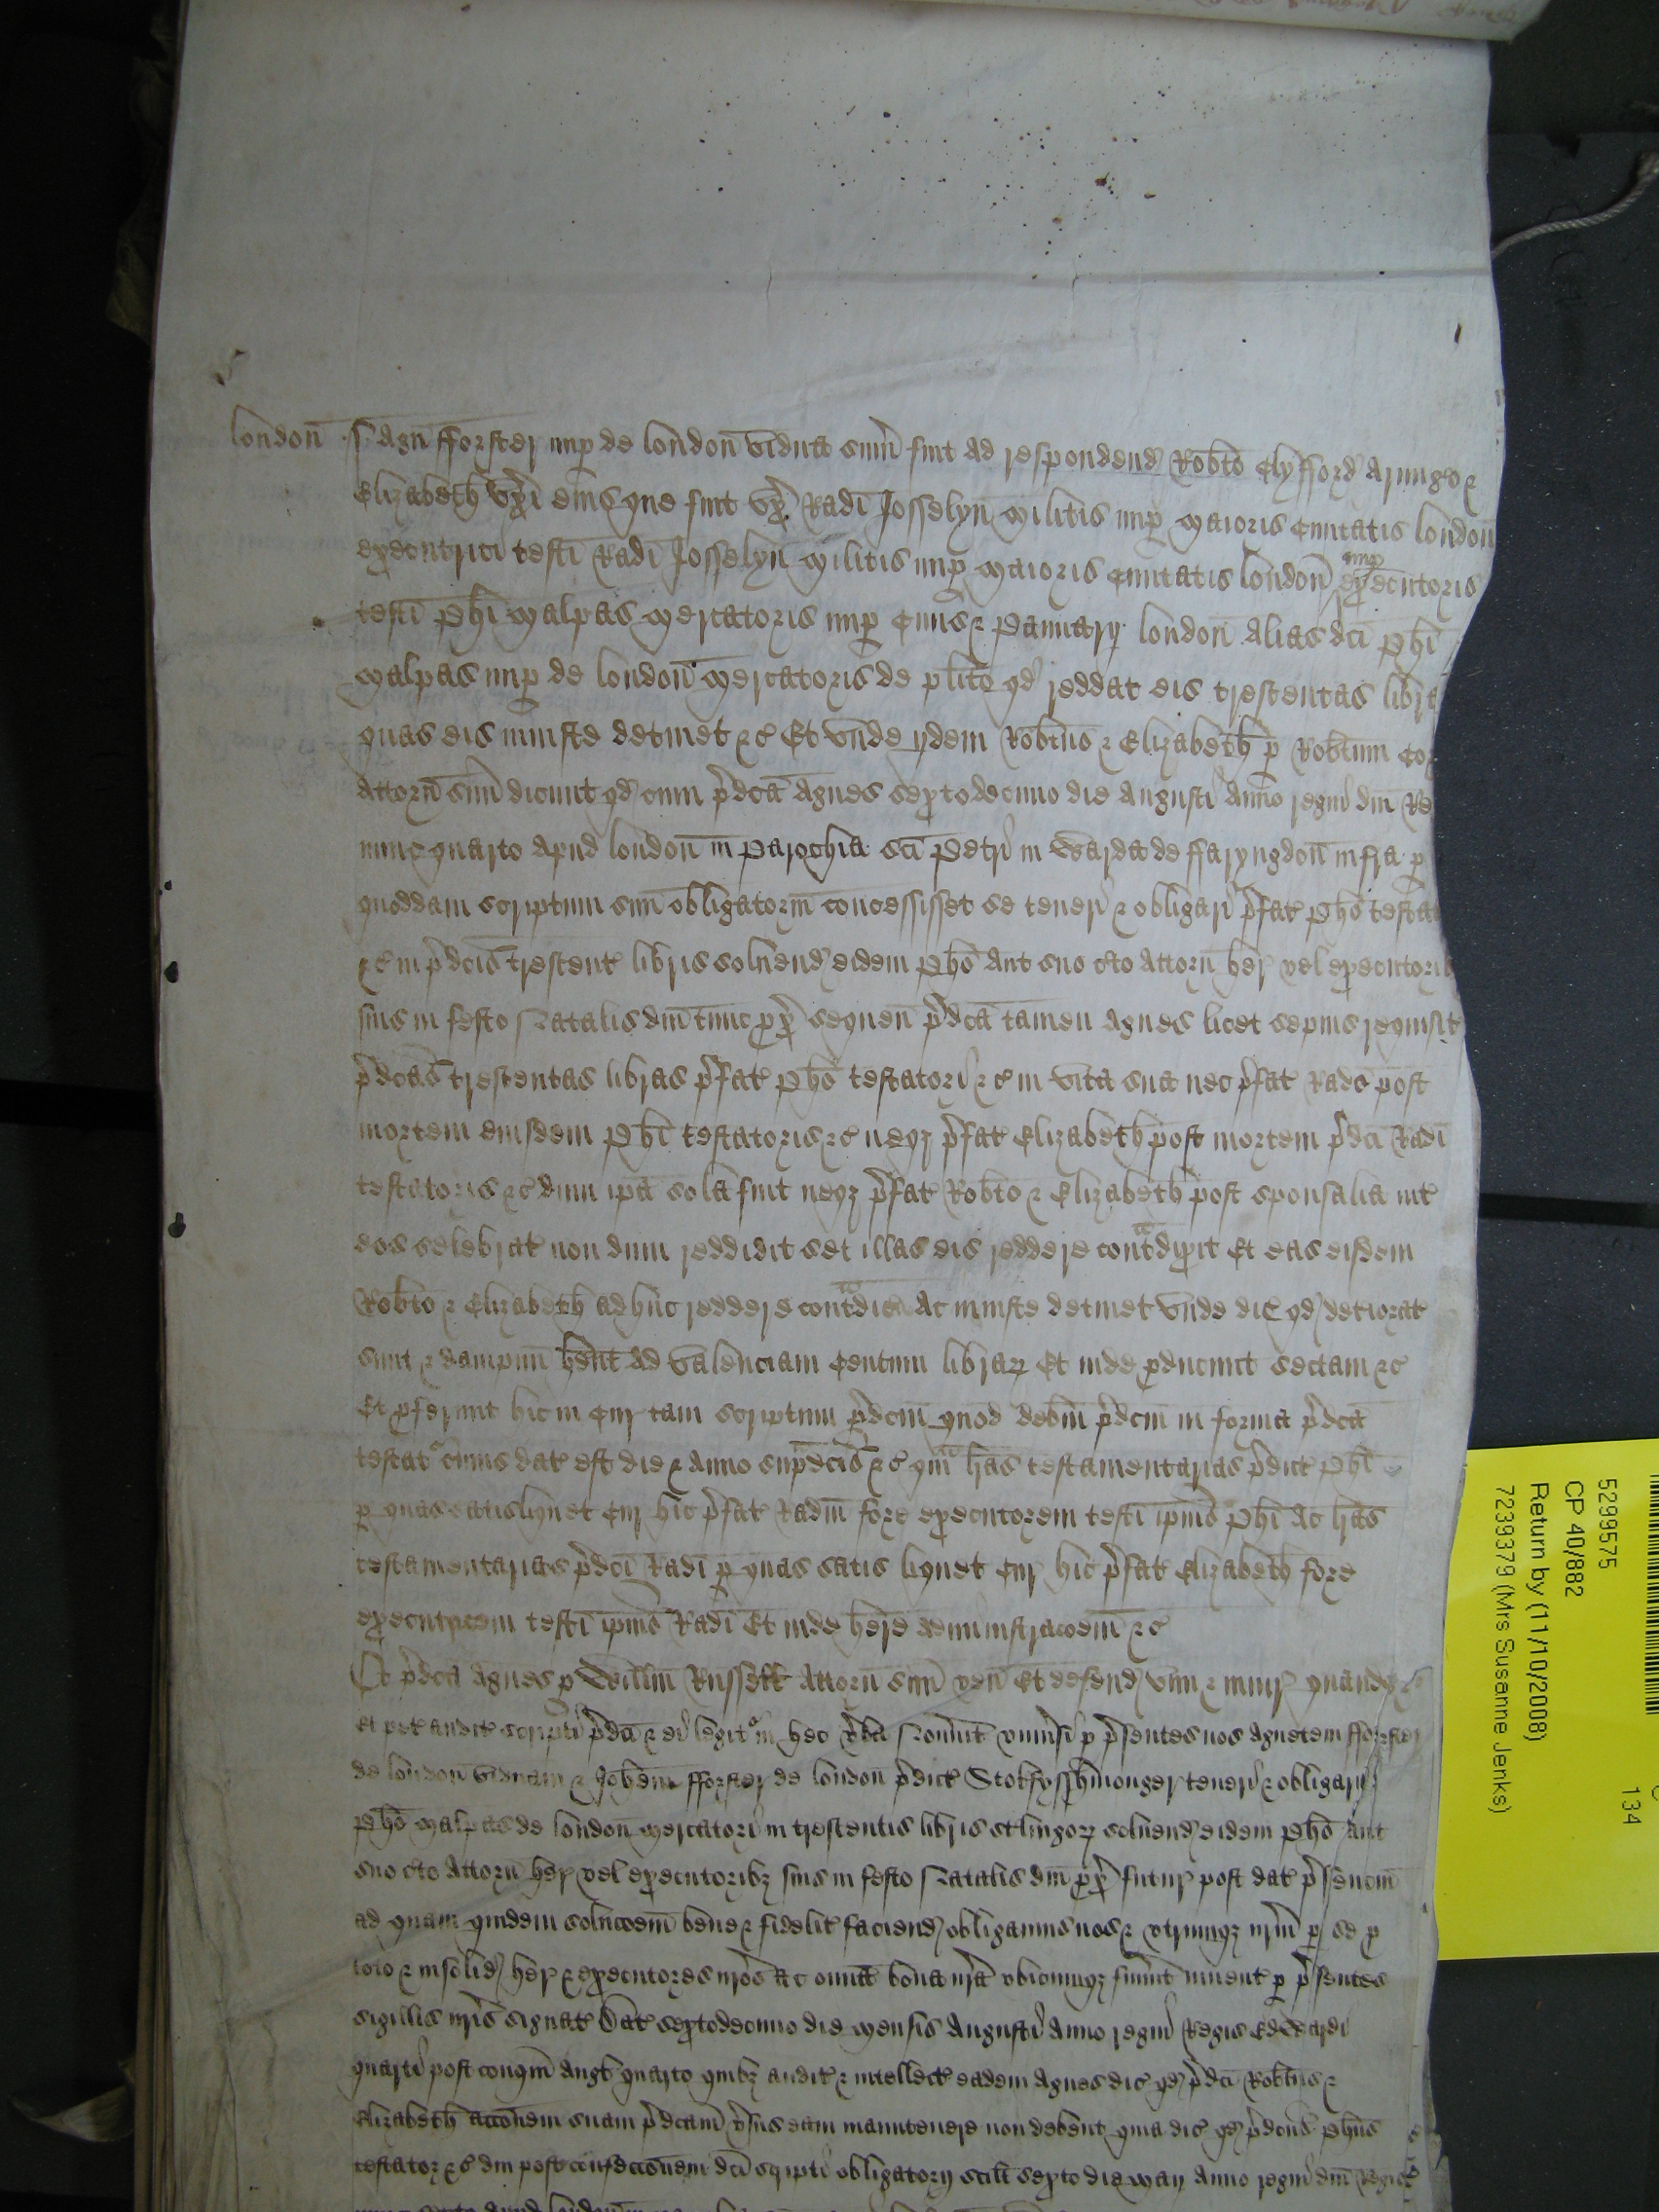 london ss Agn fforster nup de london vidua sum fuit ad respondend Robto Clyfford Armigo &
Elizabeth uxi eius que fuit ux Radi Josselyn militis nup maioris Civitatis london
executrici testi Radi Josselyn militis nup maioris Civitatis london nup executoris
testi Phi malpas mercatoris nup Civis & london alias dci Phi
malpas nup de london mercatoris de plito qd reddat eis trescentas libr
quas eis iniuste detinet &c Et unde ijdem Robtus & Elizabeth p Robtum
attorn suu dicunt qd cum pdca Agnes septodecimo die Augusti Anno regni dni Re
nunc quarto apud london in parochia sci Petri in Warda de ffaryngdon infra p
quoddam scriptum suu obligatoriu concessisset se teneri & obligari pfat Pho testa
&c in pdcis trescent libris solvend eidem Pho aut suo cto attorn her vel executorib
suis in festo Natalis dni tunc px sequen pdca tamen Agnes licet sepius requisit
pdcas trescentas libras pfat Pho testatori &c in vita sua nec pfat Rado post
mortem eiusdem Phi testatoris &c neqz pfat Elizabeth post mortem pdci Radi
testatoris &c dum ipa sola fuit neqz pfat Robto & Elizabeth post sponsalia int
eos celebrat non dum reddidit set illas eis reddere contradixit Et eas eisdem
Robto & Elizabeth adhuc reddere contradic Ac iniuste detinet unde dic qd detiorat
sunt & dampnu hent ad valenciam Centum librar Et inde pducunt sectam &c
Et pferunt hic in Cur tam scriptum pdcm quod debm pdcm in forma pdca
testat cuius dat est die & Anno supdcis &c qm lras testamentarias pdict Phi
p quas satis liquet Cur hic pfat Radm fore executorem testi ipius Phi Ac lras
testamentarias pdci Radi p quas satis liquet Cur hic pfat Elizabeth fore
executricem testi ipius Radi Et inde here adminstracoem &c
Et pdca Agnes p Willm Russell attorn suu ven Et defend vim & iniur quando &c
Et pet audit scripti pdci & ei legit in hec vba Novint univsi p psentes nos Agnetem fforster
de london viduam & Johem fforster de london pdict Stokfysshmonger teneri & obligari
Pho malpas de london mercatori in trescentis libris stlingor solvend eidem Pho aut
suo cto attorn her vel executoribz suis in festo Natalis dni px futur post dat psencm
ad quam quidem solucoem bene & fidelit faciend obligamus nos & utrumqz nrm p se p
toto & insolid her & executores nros ac omia bona nra ubicumqz fuint invent p psentes
sigillis nris signat Dat septodecimo die mensis Augusti Anno regni Regis Edwardi
quarti post conqm Angl quarto quibz audit & intellect eadem Agnes dic qd pdci Robtus &
Elizabeth accoem suam pdcam vsus eam manutenere non debent quia dic qd pdcus Phus
testator &c diu post confeccoem dci scripti obligatorij scilt sexto die maij Anno regni dni Regis

5299575
CP 40/882
Return by (11/10/2008)
7239379 (Mrs Susanne Jenks)
134